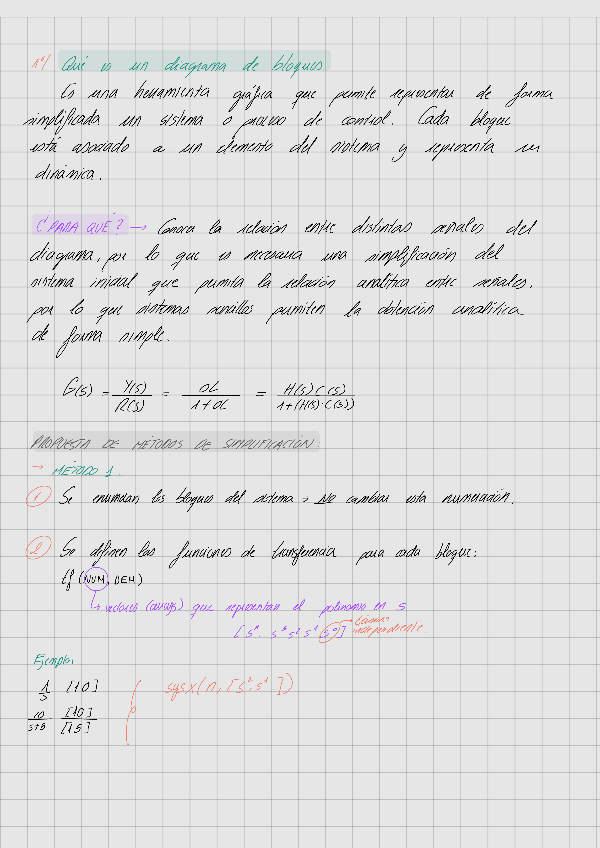 1º/ Qué es un diagrama de bloques
Es una herramienta gráfica que permite representar de forma
simplificada un sistema o proceso de control. Cada bloque
está asociado a un elemento del sistema y representa su
dinámica.
¿PARA QUÉ? → Conocer la relación entre distintas señales del
diagrama, por lo que es necesaria una simplificación del
sistema inicial que permita la relación analítica entre señales.
por lo que sistemas sencillos permiten la obtención analítica
de forma simple.
G(s) = Y(s)/R(s) = OL/1+OL = H(s)C(s)/1+(H(s)·C(s))
PROPUESTA DE MÉTODOS DE SIMPLIFICACIÓN:
→ MÉTODO 1.
① Se enumeran los bloques del sistema → No cambiar esta numeración.
② Se definen las funciones de transferencia para cada bloque:
tf (NUM, DEN)
↳ vectores (arrays) que representan el polinomio en s
[sⁿ... s³ s² s¹ s⁰] → término
independiente.
Ejemplo:
1/s [10]
10/s+5 [10]/[15]
sysx(n, [s², s¹ ])